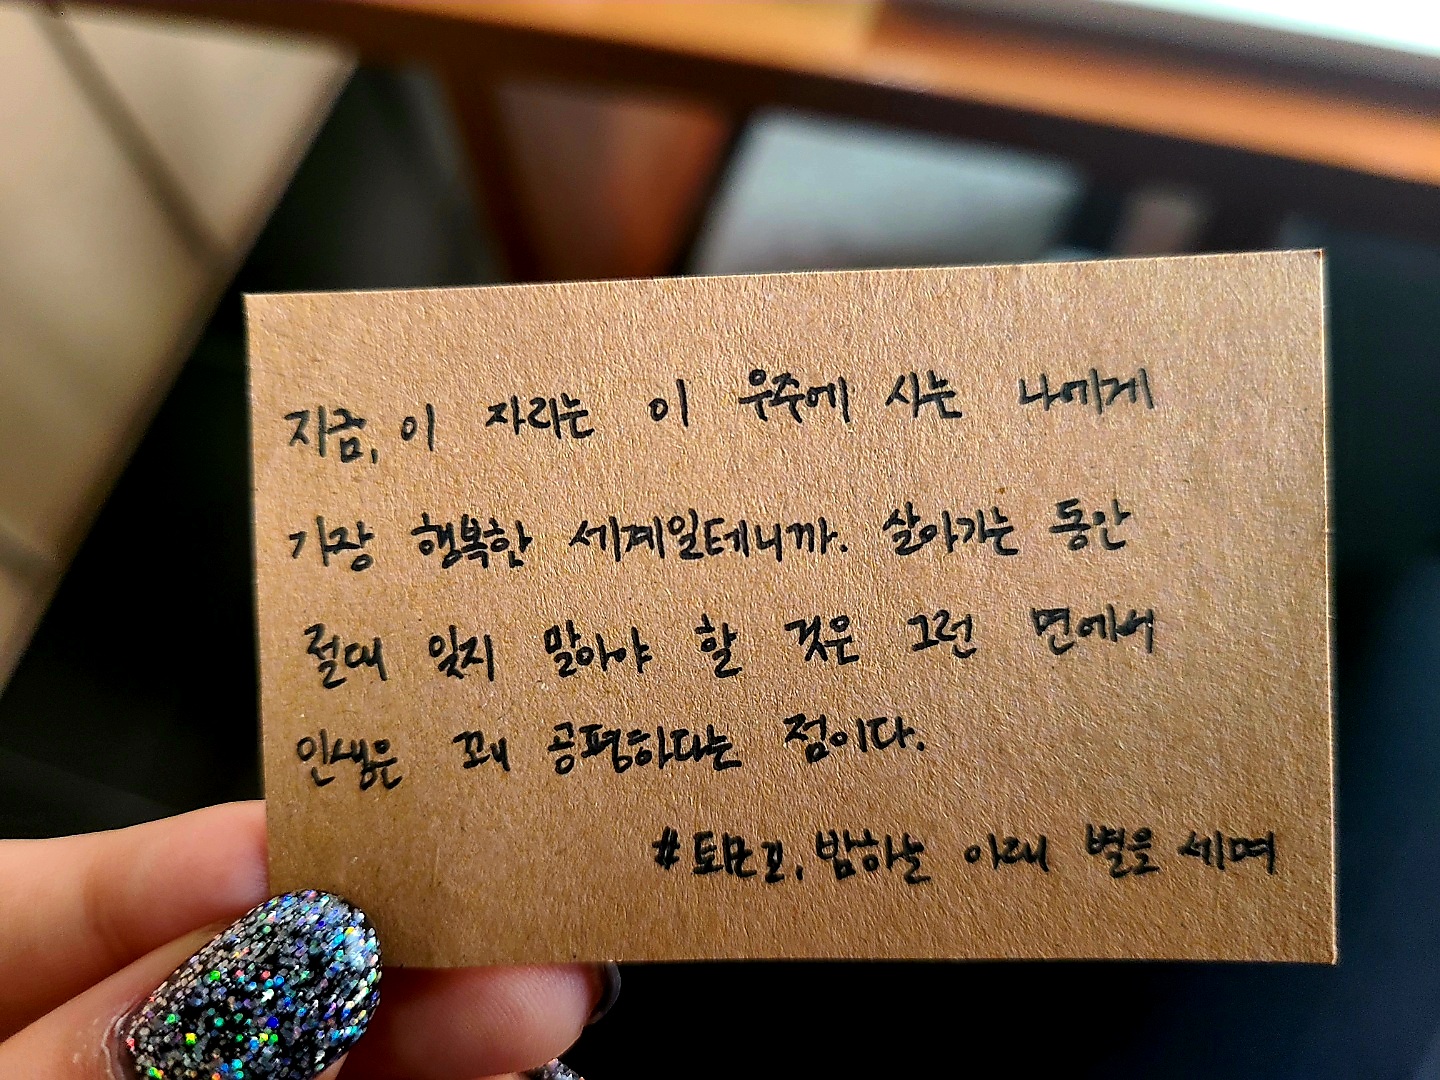 지금, 이 자리는 이 우주에 사는 나에게
가장 행복한 세계일테니까. 살아가는 동안
절대 잊지 말아야 할 것은 그런 면에서
인생은 꽤 공평하다는 점이다.
#퇴만꼬, 밤하늘 아래 별을 세며